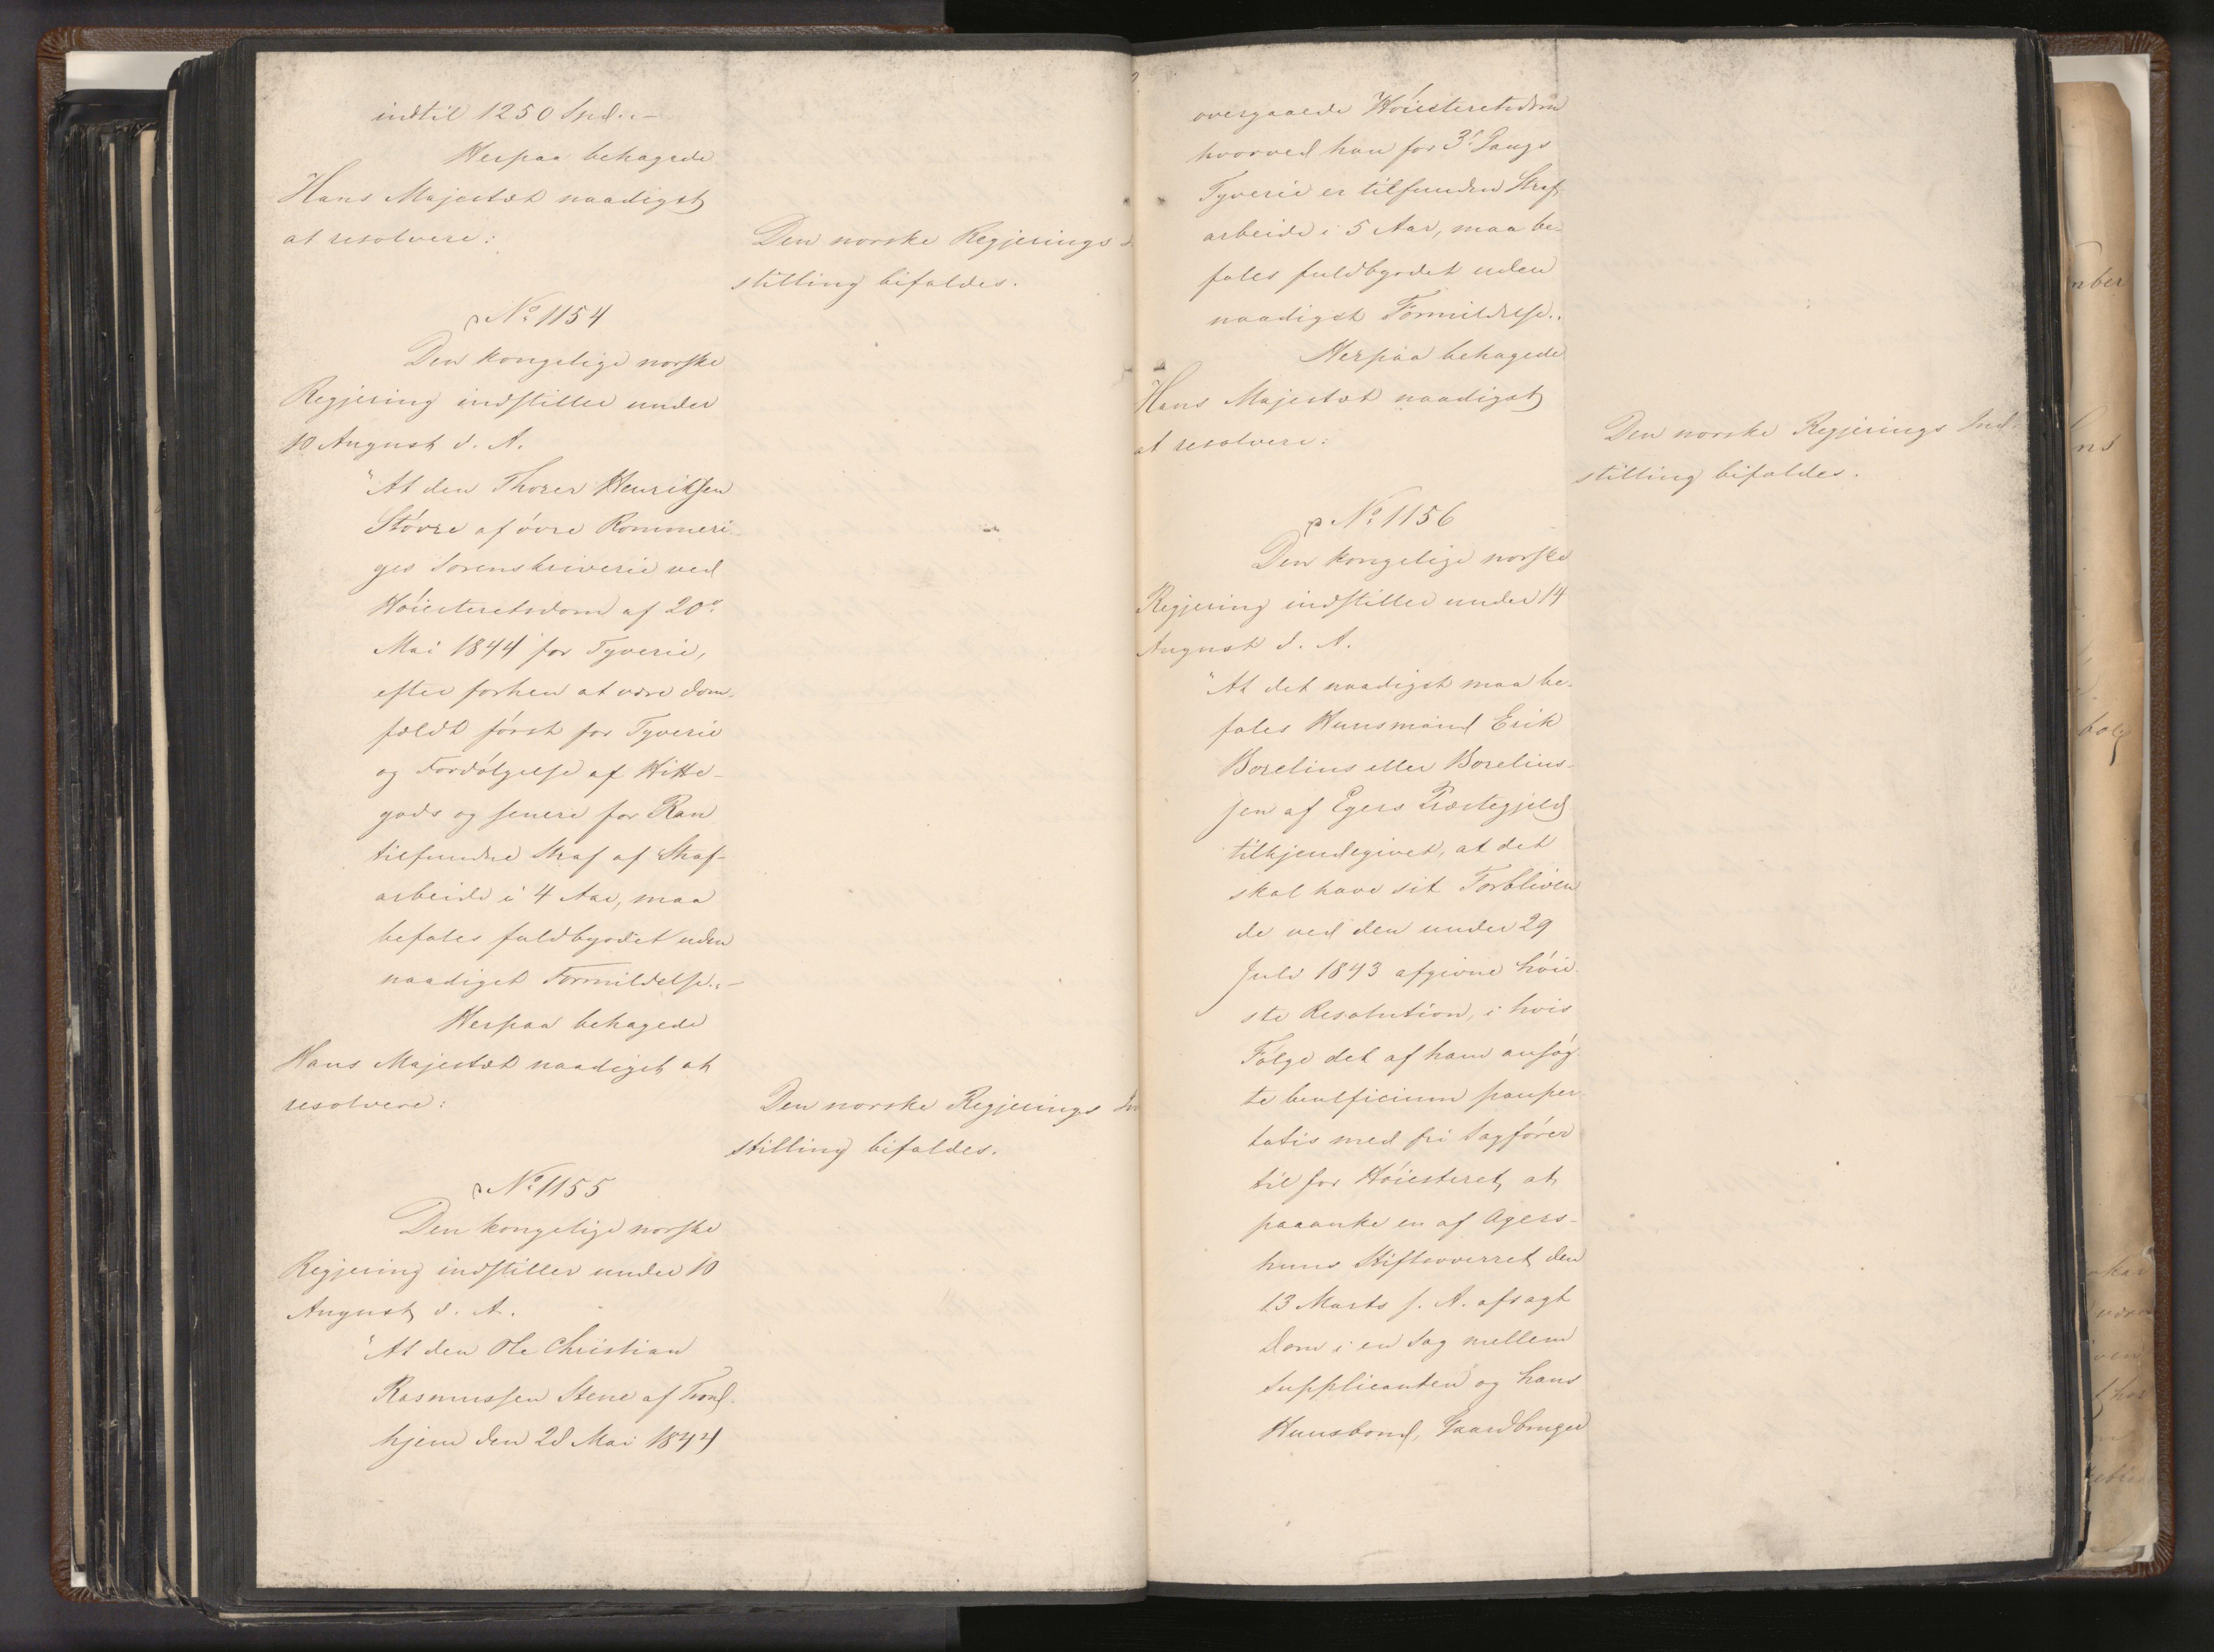 indtil 1250 Spd."-
Herpaa behagede
Hans Majestæt naadigst
at resolvere:
Den norske Regjerings
stilling bifaldes.
No 1154
Den kongelige norske
Regjering indstiller under
10 August d. A.
"At den Thorer Henriksen
Støvre af øvre Rommeri-
ges Sorenskriverie ved
Høiesteretsdom af 20de
Mai 1844 for Tyverie,
efter forhen at være dom-
fældt først for Tyverie
og Fordølgelse af Hitte-
gods og senere for Ran
tilfundne Straf af Straf-
arbeide i 4 Aar, maa
befales fuldbyrdet uden
naadigst Formildelse."-
Herpaa behagede
Hans Majestæt naadigst at
resolvere:
Den norske Regjerings In
stilling bifaldes.
No 1155
Den kongelige norske
Regjering indstiller under 10
August d. A.
"At den Ole Christian
Rasmussen Stene af Trond-
hjem den 28 Mai 1844
overgaaede Høiesteretsdom
hvorved han for 3die Gangs
Tyverie er tilfunden Straf-
arbeide i 5 Aar, maa be-
fales fuldbyrdet uden
naadigst Formildelse."
Herpaa behagede
Hans Majestæt naadigst
at resolvere:
Den norske Regjerings Ind-
stilling bifaldes.
No 1156
Den kongelige norske
Regjering indstiller under 14
August d. A.
"At det naadigst maa be-
fales Huusmand Erik
Borelius eller Borelius-
sen af Egers Præstegjeld
tilkjendegivet, at det
skal have sit Forbliven
de ved den under 29
Juli 1843 afgivne høie-
ste Resolution, i hvis
Følge det af ham ansøg-
te beneficium pauper-
tatis med fri Sagfører
til for Høiesteret, at
paaanke en af Agers-
huus Stiftsoverret den
13 Marts f. A. afsagt
Dom i en Sag mellem
Supplicanten og hans
Huusbond, Gaardbruger